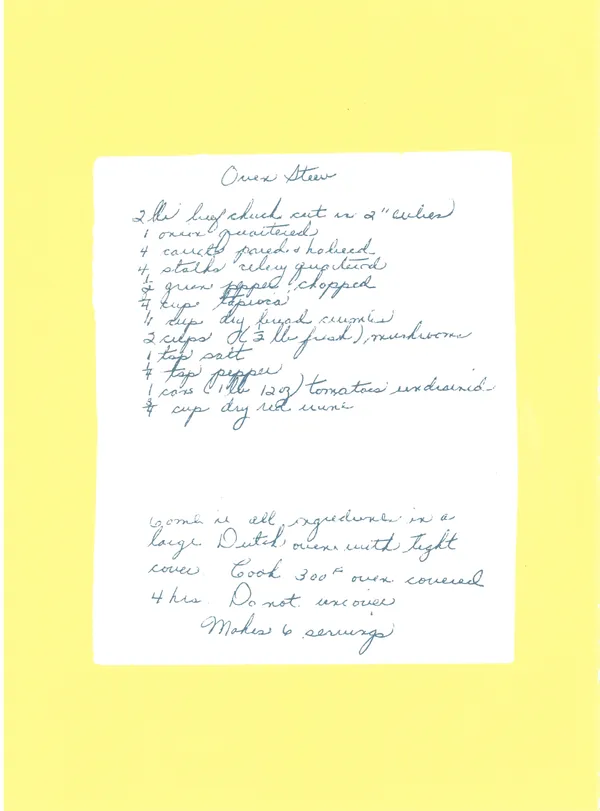 Oven Stew
2 lb beef chuck cut in 2" cubes
1 onion quartered
4 carrots pared & halved
4 stalks celery quartered
1/2 green pepper chopped
1/4 cup tapioca
1/4 cup dry bread crumbs
2 cups (1/2 lb fresh) mushrooms
1 tsp salt
1/4 tsp pepper
1 can (1 lb 12 oz) tomatoes undrained
3/4 cup dry red wine
Combine all ingredients in a
large Dutch oven with tight
cover Cook 300° oven covered
4 hrs. Do not uncover
Makes 6 servings